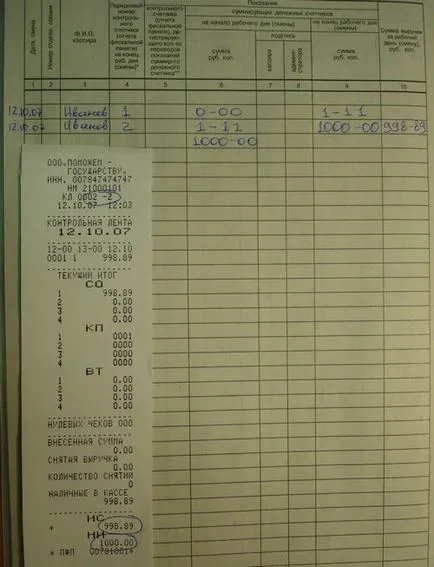 Показания
суммирующих денежных счетчиков
Дата, смена
Номер отдела, секции
Ф.И.О. кассира
Порядковый номер контрольного счетчика (отчета фискальной памяти) на конец раб. дня (смены)*
контрольного счетчика (отчета фискальной памяти), регистрирующего кол-во переводов показаний суммир-го денежного счетчика**
на начало рабочего дня (смены)
на конец рабочего дня (смены)
Сумма выручки за рабочий день (смену), руб. коп.
сумма руб. коп.
подпись
кассира
администратора
сумма руб. коп.
1 2 3 4 5 6 7 8 9 10
12.10.07 Иванов 1 0-00 1-11
12.10.07 Иванов 2 1-11 1000-00 998-89
1000-00
ООО."ПОМОЖЕМ -
ГОСУДАРСТВУ".
ИНН. 007847474747
НМ 21000101
КЛ 0002 -2
12.10.07 12:03
КОНТРОЛЬНАЯ ЛЕНТА
12.10.07
12-00 13-00 12.10
0001 1 998.89
ТЕКУЩИЙ ИТОГ
СО
1 998.89
2 0.00
3 0.00
4 0.00
КП
1 0001
2 0000
3 0000
4 0000
ВТ
1 0.00
2 0.00
3 0.00
4 0.00
НУЛЕВЫХ ЧЕКОВ 000
ВНЕСЕННАЯ СУММА
0.00
СНЯТАЯ ВЫРУЧКА
0.00
КОЛИЧЕСТВО СНЯТИЙ
0
НАЛИЧНЫЕ В КАССЕ
998.89
ИС
* 998.89
НИ
1000.00
* ПФП 00781001*